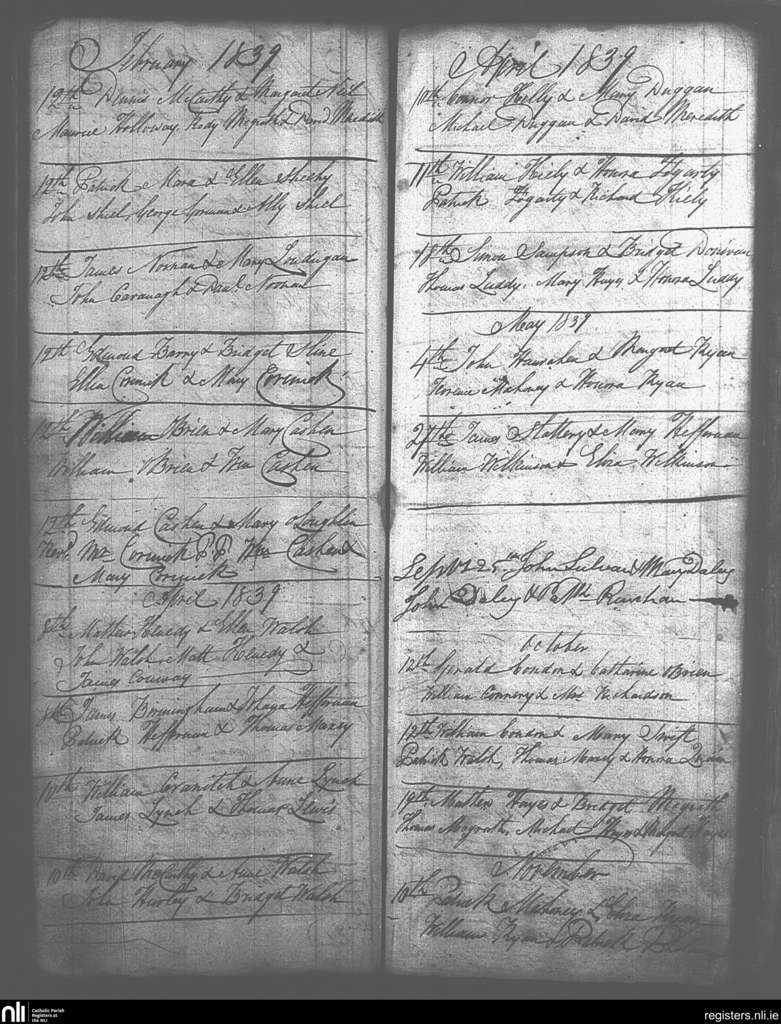 February 1839
12th Dennis McCarthy & Margaret Neil
Maurice Holloway, Rody Megrath & David Meredith
12th Patrick Mara & Ellen Sheehy
John Shiel, George Gorman & Ally Shiel
12th James Noonan & Mary Londugan
John Cavanagh & Danl. Noonan
12th Edmond Barry & Bridget Hine
Ellen Cormick & Mary Cormick
12th William OBrien & Mary Cashen
William OBrien & Wm Cashen
12th Edmond Cashen & Mary OLoughlin
Revd. Mr. Cormick P.P. Wm Cashen &
Mary Cormick
April 1839
8th Mathew Kenedy & Ellen Walsh
John Walsh, Matt Kenedy &
James Conway
8th James Bermingham & Heffernan
Patrick Heffernan & Thomas Maxey
10th William Cranitch & Anne Lynch
James Lynch & Thomas Lewis
10th David McCarthy & Anne Walsh
John Hurley & Bridget Walsh
April 1839
10th Connor Kielly & Mary Duggan
Michael Duggan & David Meredith
11th William Kiely & Honora Fogarty
Patrick Fogarty & Richard Kiely
18th Simon Sampson & Bridget Donivan
Thomas Luddy, Mary Hayes & Honora Luddy
May 1839
4th John Hanrahan & Margret Ryan
Mahoney & Honora Ryan
27th James Slattery & Mary Heffernan
William Wilkinson & Eliza Wilkinson
Septr. 25th John Sulivan & Mary Daley
John Daley & Patk.
October
12th Gerald Condon & Catharine OBrien
William Connery & Mrs Richardson
12th William Condon & Mary Swift
Patrick Walsh, Thomas Maxey & Honora Quinn
19th Mathew Hayes & Bridget Megrath
Thomas Megrath, Michael Hayes & Bridget Hayes
November
10th Patrick Mahoney & Eliza Ryan
William Ryan & Patrick
nli
Catholic Parish
Registers at
the NLI
registers.nli.ie